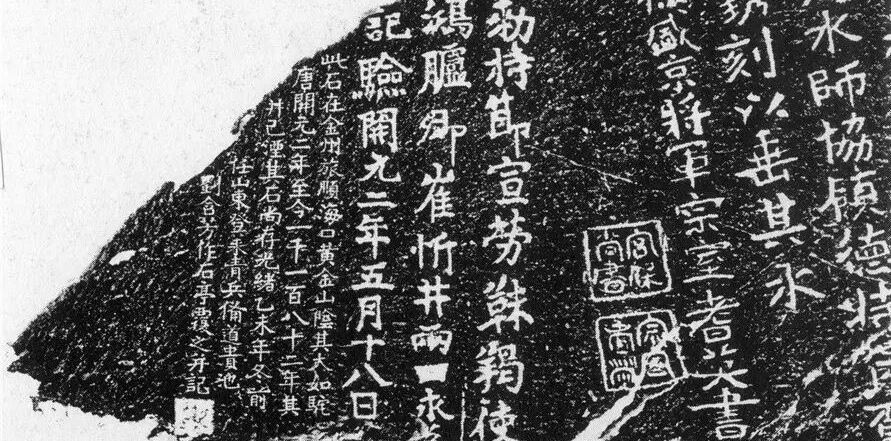 水師協領德特賀
鐫刻以垂其永
盛京將軍宗室耆英書
宮保尚書
勅持節宣勞靺羯使
鴻臚卿崔忻井兩口永為
記驗開元二年五月十八日
此石在金州旅順海口黃金山陰其大如駝
唐開元二年至今一千一百八十二年其
井已湮其石尚存光緒乙未年冬前
任山東登萊青兵備道貴池
劉含芳作石亭覆之并記